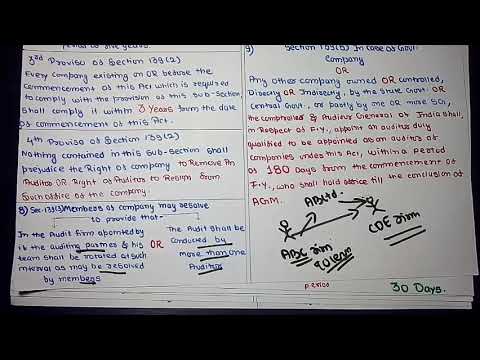 period of five years.
3rd Proviso of Section 139(2)
Every company existing on OR before the
commencement of this Act which is required
to comply with the provision of this sub-section
shall comply it within 3 Years from the date
of commencement of this Act.
4th Proviso of Section 139(2)
Nothing contained in this Sub-section shall
prejudice the Right of company to Remove An
Auditor OR Right of Auditor to Resign from
Such office of the company.
8) Sec.139(3) Members of company may resolve
to provide that-
In the Audit firm appointed
by it the auditing partner & his
team shall be rotated at such
interval as may be resolved
by members
OR
The Audit shall be
conducted by
more than one
Auditor
9) Section 139(5) In case of Govt.
Company
OR
Any other company owned OR controlled,
Directly OR Indirectly, by the State Govt. OR
Central Govt. or partly by one or more SGs,
the comptroller & Auditor General of India shall,
in Respect of F.Y., appoint an auditor duly
qualified to be appointed as an auditor of
companies under this Act, within a Period
of 180 Days from the commencement of
F.Y., who shall hold office till the conclusion of
AGM.
ABC firm
CDE firm
period
30 Days.